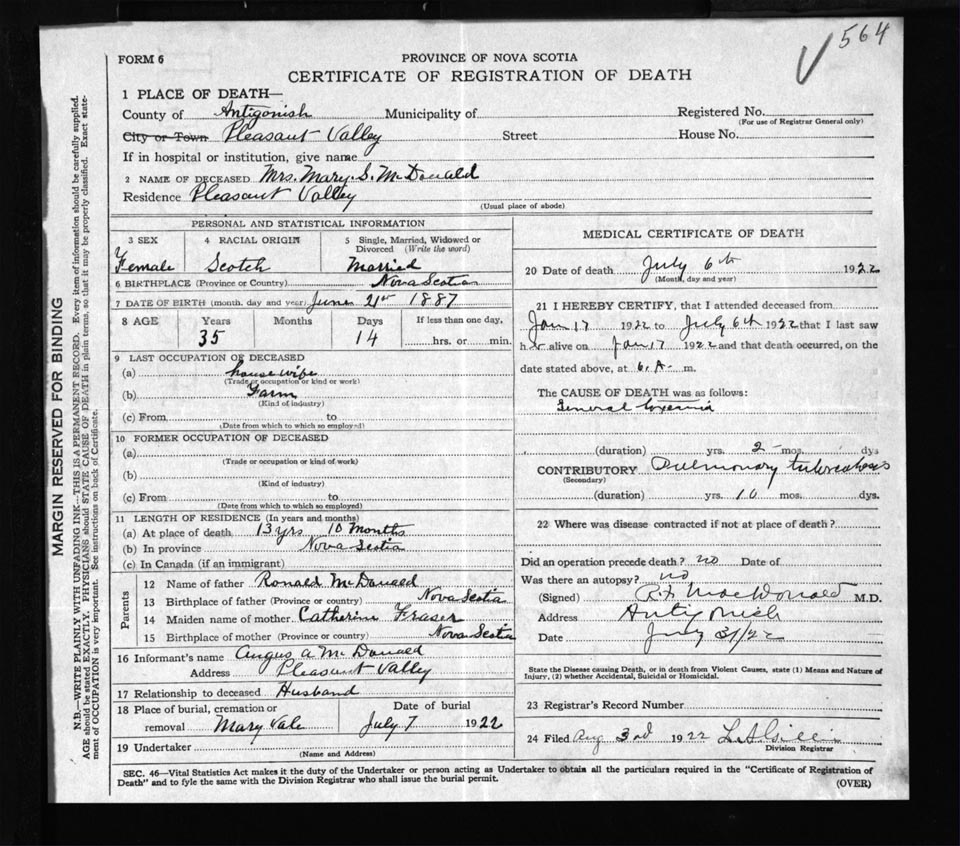 564
FORM 6
PROVINCE OF NOVA SCOTIA
CERTIFICATE OF REGISTRATION OF DEATH
1 PLACE OF DEATH—
County of Antigonish Municipality of Registered No.
(For use of Registrar General only)
City or Town Pleasant Valley Street House No.
If in hospital or institution, give name
2 NAME OF DECEASED Mrs. Mary. S. McDonald
Residence Pleasant Valley
(Usual place of abode)
PERSONAL AND STATISTICAL INFORMATION
3 SEX 4 RACIAL ORIGIN 5 Single, Married, Widowed or Divorced (Write the word)
Female Scotch Married
6 BIRTHPLACE (Province or Country) Nova Scotia
7 DATE OF BIRTH (month, day and year) June 21st 1887
8 AGE Years Months Days If less than one day,
35 14 hrs. or min.
9 LAST OCCUPATION OF DECEASED
(a) house wife
(Trade or occupation or kind or work)
(b) Farm
(Kind of industry)
(c) From to
(Date from which to which so employed)
10 FORMER OCCUPATION OF DECEASED
(a)
(Trade or occupation or kind of work)
(b)
(Kind of industry)
(c) From to
(Date from which to which so employed)
11 LENGTH OF RESIDENCE (In years and months)
(a) At place of death 13 yrs 10 months
(b) In province Nova Scotia
(c) In Canada (if an immigrant)
Parents
12 Name of father Ronald McDonald
13 Birthplace of father (Province or country) Nova Scotia
14 Maiden name of mother Catherine Fraser
15 Birthplace of mother (Province or country) Nova Scotia
16 Informant's name Angus A McDonald
Address Pleasant Valley
17 Relationship to deceased Husband
18 Place of burial, cremation or removal Date of burial
Mary Vale July 7 1922
19 Undertaker
(Name and Address)
MEDICAL CERTIFICATE OF DEATH
20 Date of death July 6th 1922
(Month, day and year)
21 I HEREBY CERTIFY, that I attended deceased from
Jan 17 1922 to July 6th 1922 that I last saw
her alive on Jan 17 1922 and that death occurred, on the
date stated above, at 6. A. m.
The CAUSE OF DEATH was as follows:
General toxemia
(duration) yrs. 2 mos. dys
CONTRIBUTORY Pulmonary tuberculosis
(Secondary)
(duration) yrs. 10 mos. dys.
22 Where was disease contracted if not at place of death?
Did an operation precede death? no Date of
Was there an autopsy? no
(Signed) MacDonald M.D.
Address Antigonish
Date July 31/22
State the Disease causing Death, or in death from Violent Causes, state (1) Means and Nature of
Injury, (2) whether Accidental, Suicidal or Homicidal.
23 Registrar's Record Number
24 Filed Aug 3rd 1922
Division Registrar
SEC. 46—Vital Statistics Act makes it the duty of the Undertaker or person acting as Undertaker to obtain all the particulars required in the "Certificate of Registration of
Death" and to fyle the same with the Division Registrar who shall issue the burial permit.
(OVER)
MARGIN RESERVED FOR BINDING
N.B.—WRITE PLAINLY WITH UNFADING INK—THIS IS A PERMANENT RECORD. Every item of information should be carefully supplied.
AGE should be stated EXACTLY. PHYSICIANS should STATE CAUSE OF DEATH in plain terms, so that it may be properly classified. Exact state-
ment of OCCUPATION is very important. See instructions on back of Certificate.